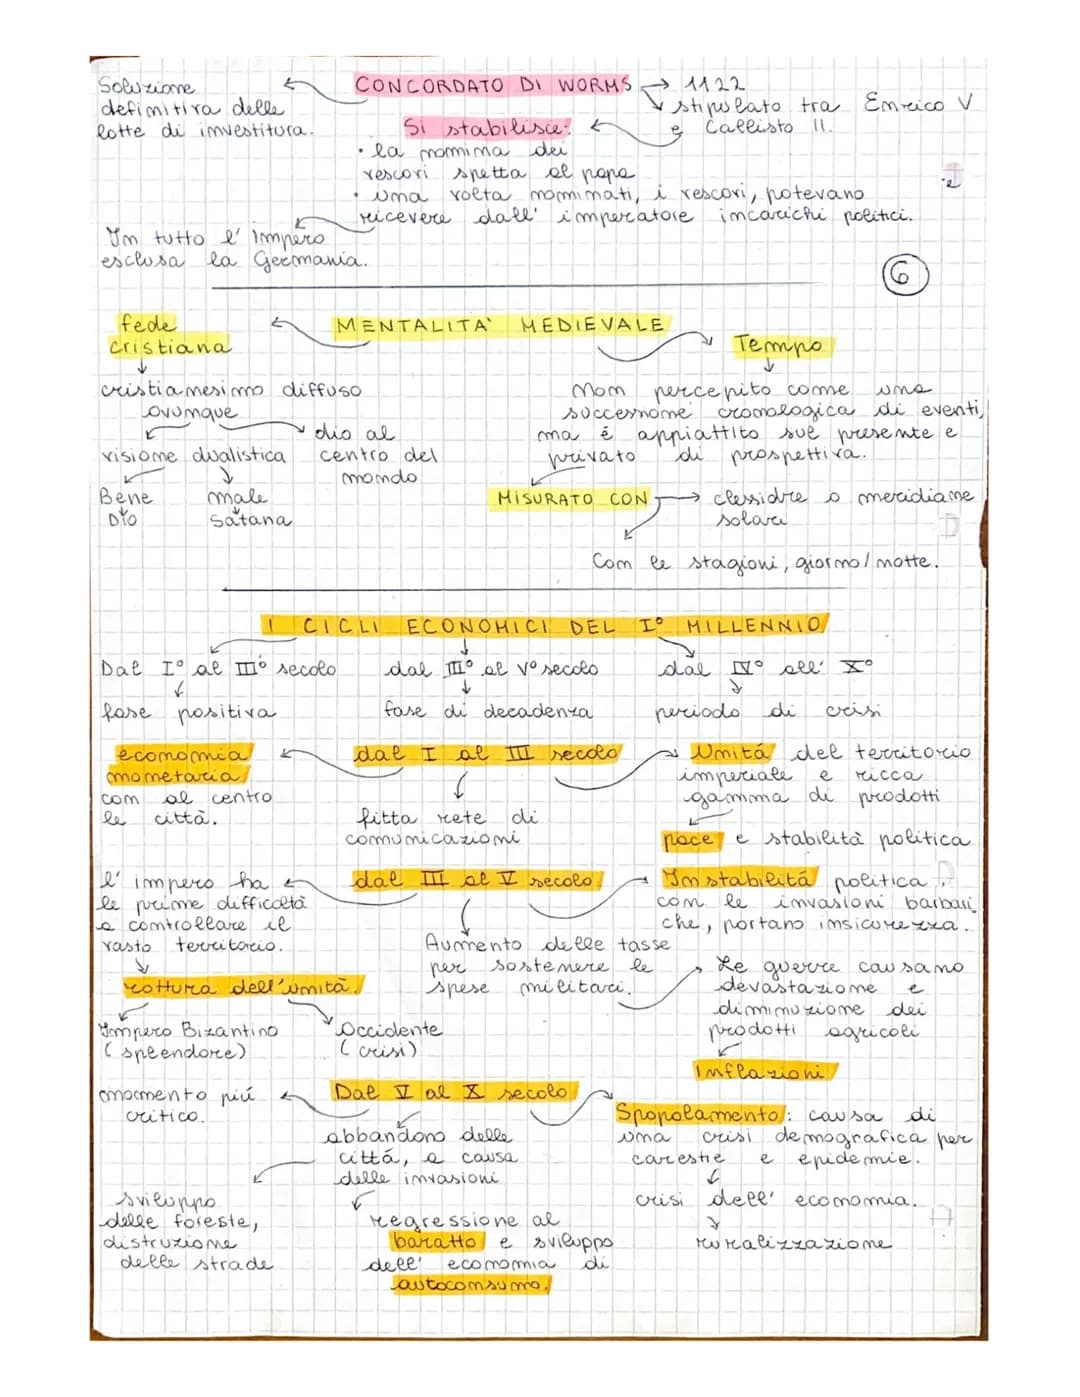 Soluzione
definitiva delle
lotte di investitura.
CONCORDATO DI WORMS
1122
stipulato tra Enrico V
e Callisto II.
Si stabilisce:
• la nomina dei
vescovi spetta al papa
• una volta nominati, i vescovi, potevano
ricevere dall' imperatore incarichi politici.
In tutto l' impero
esclusa la Germania.
6
MENTALITA' MEDIEVALE
fede
cristiana
cristianesimo diffuso
ovunque
visione dualistica
dio al
centro del
mondo
Bene
Dio
male
Satana
Tempo
Non percepito come una
successione cronologica di eventi,
ma é appiattito sul presente e
privato di prospettiva.
MISURATO CON
clessidre o meridiane
solari
Con le stagioni, giorno/notte.
I CICLI ECONOMICI DEL I° MILLENNIO
Dal I° al III° secolo
fase positiva
dal III° al V° secolo
fase di decadenza
dal IV° all' X°
periodo di crisi
dal I al III secolo
economia
monetaria
con al centro
le città.
fitta rete di
comunicazioni
Unitá del territorio
imperiale e ricca
gamma di prodotti
pace e stabilità politica
dal III al V secolo
l' impero ha
le prime difficoltà
a controllare il
vasto territorio.
rottura dell'unità.
Impero Bizantino
(splendore)
Occidente
(crisi)
Aumento delle tasse
per sostenere le
spese militari.
Instabilitá politica,
con le invasioni barbari
che, portano insicurezza.
Le guerre causano
devastazione e
diminuzione dei
prodotti agricoli
Inflazioni
Dal V al X secolo
momento piú
critico.
abbandono delle
cittá, a causa
delle invasioni
sviluppo
delle foreste,
distruzione
delle strade
regressione al
baratto e sviluppo
dell' economia di
autoconsumo.
Spopolamento: causa di
una crisi demografica per
carestie e epidemie.
crisi dell' economia.
ruralizzazione